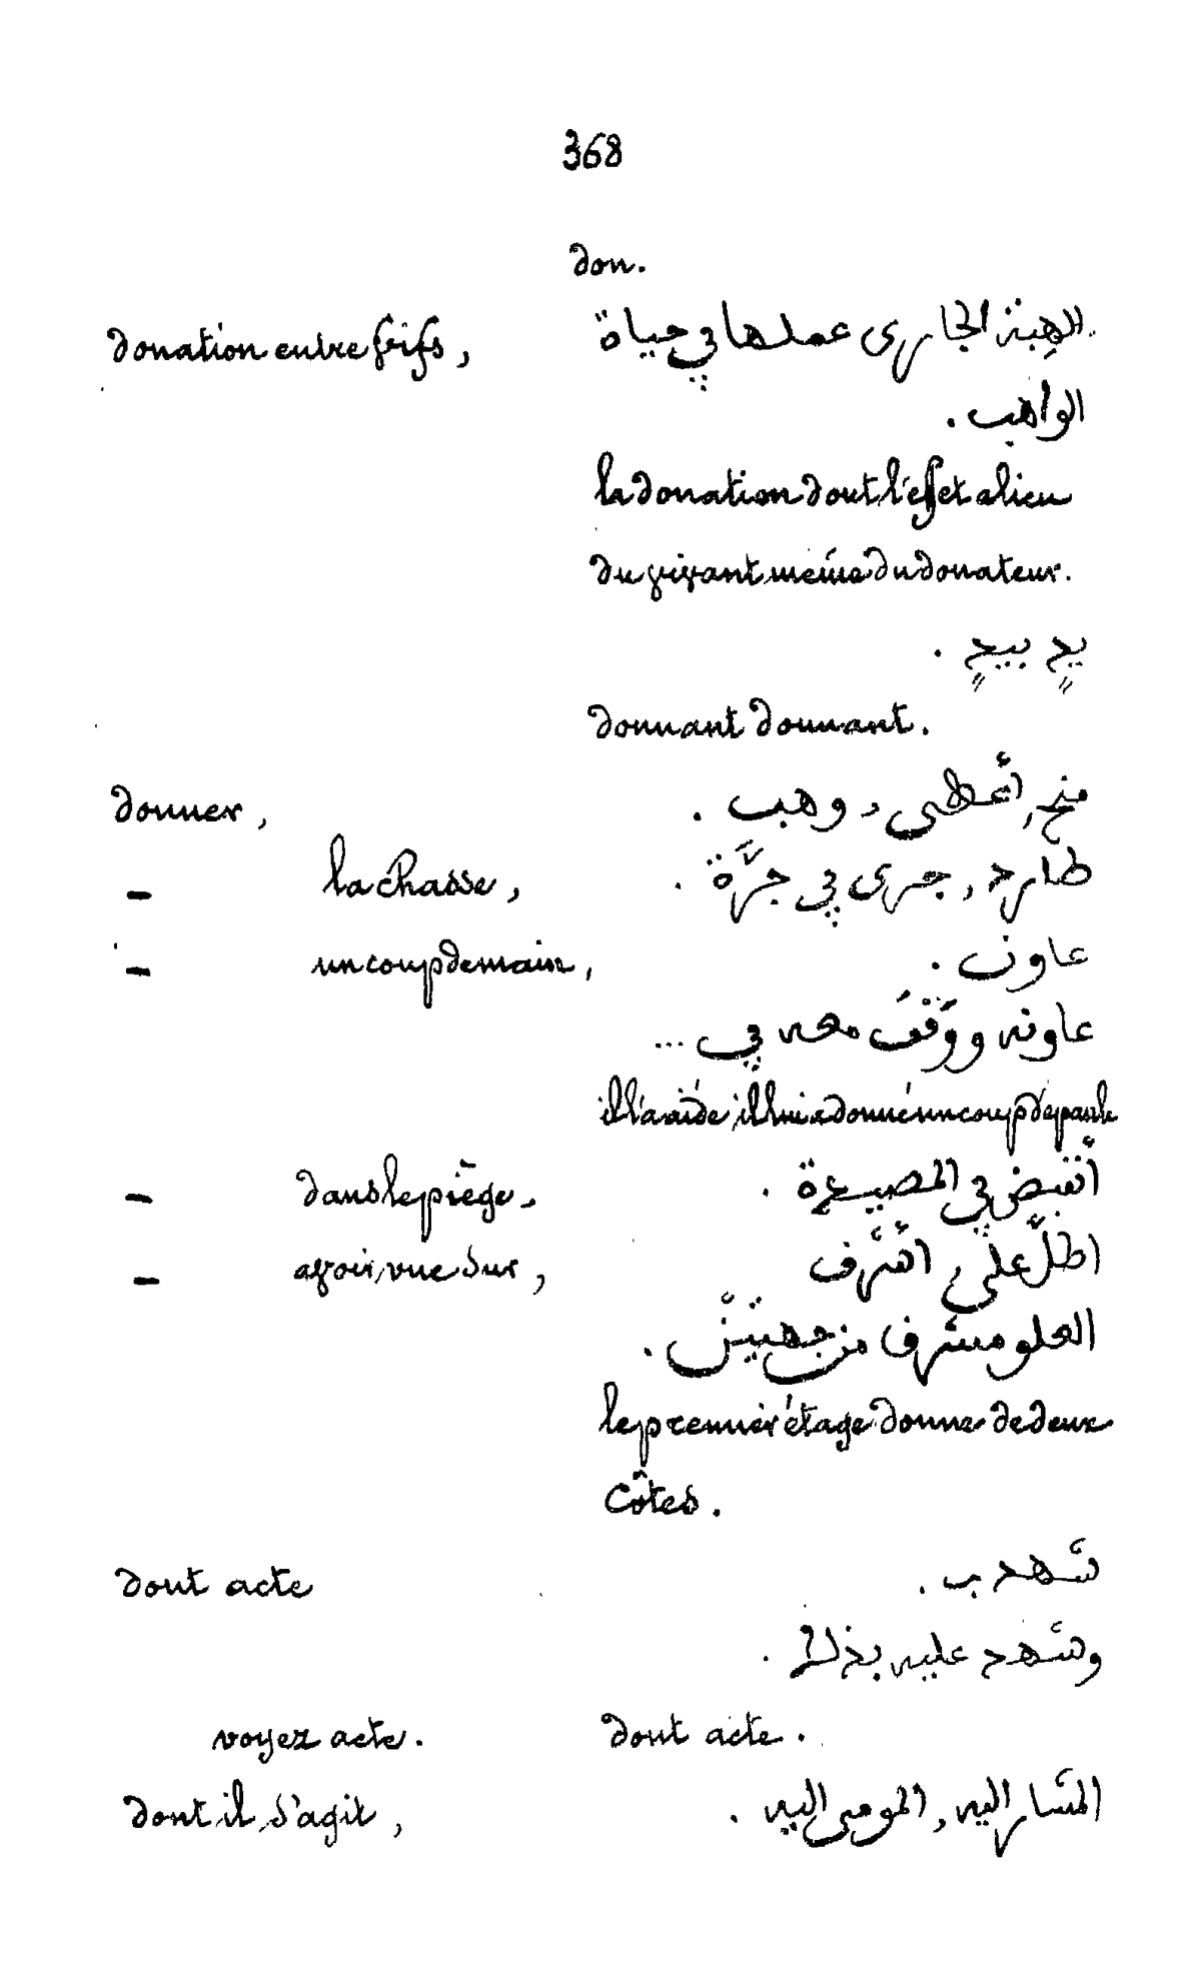 368
don.
donation entre vifs, الهِبة الجاري عملها في حياة
الواهب.
la donation dont l'effet a lieu
du vivant même du donateur.
يدٍ بيدٍ.
donnant donnant.
donner, منح, أعطى, وهب.
— la chasse, طارد, جرى في جرَّة.
— un coup de main, عاون.
عاونه ووَقَفَ معه في ...
il l'a aidé, il lui a donné un coup d'épaule
— dans le piège, أنقبض في المصيدة.
— avoir vue sur, اطلّ على, أشرف
العلو مشرف من جهتَيْن.
le premier étage donne de deux
côtés.
dont acte شهد ب.
وشهد عليه بذلك.
voyez acte. dont acte.
dont il s'agit, المشار اليه, المومى اليه.